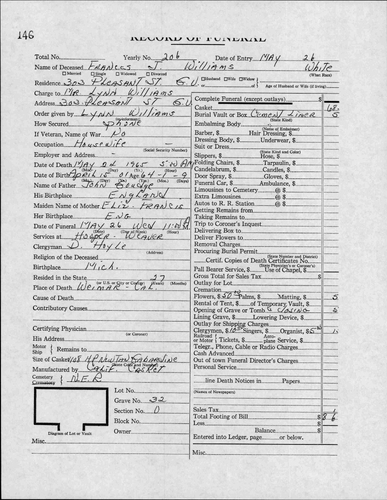 146
RECORD OF FUNERAL
Total No. Yearly No. 206 Date of Entry MAY 26
Name of Deceased FRANCES J. Williams White
Married Single Widowed Divorced (What Race)
Residence 303 PLEASANT ST. G.V. Husband Wife Widow
Age of Husband or Wife (if living)
Charge to MR LYNN Williams
Address 303 PLEASANT ST G.V.
Order given by LYNN Williams
How Secured SAME
If Veteran, Name of War No
Occupation HOUSEWIFE
(Social Security Number)
Employer and Address
Date of Death MAY 24 1965
Date of Birth
Name of Father JOHN
His Birthplace ENGLAND
Maiden Name of Mother ELIZ FRANCIS
Her Birthplace ENG
Date of Funeral MAY 26 WED
Services at HOOPER-WEAVER
Clergyman D. HOYLE
Religion of the Deceased
Birthplace Mich.
Resided in the State 27
Place of Death WEIMAR CAL
Cause of Death
Contributory Causes
Certifying Physician
His Address
Motor
Ship
Remains to
Size of Casket
Manufactured by CALIF CASKET
Cemetery
Crematory N.E.R.
Lot No.
Grave No. 32
Section No. D
Block No.
Owner
Diagram of Lot or Vault
Misc.
Complete Funeral (except outlays) $
Casket
Burial Vault or Box CEMENT LINER
(State Kind)
Embalming Body
(Name of Embalmer)
Barber, $ Hair Dressing, $
Dressing Body, $ Underwear, $
Suit or Dress
(State Kind and Color)
Slippers, $ Hose, $
Folding Chairs, $ Tarpaulin, $
Candelabrum, $ Candles, $
Door Spray, $ Gloves, $
Funeral Car, $ Ambulance, $
Limousines to Cemetery @ $
Extra Limousines @ $
Autos to R. R. Station @ $
Getting Remains from
Taking Remains to
Trip to Coroner's Inquest
Delivering Box to
Deliver Flowers to
Removal Charges
Procuring Burial Permit
(State District and District)
Certif. Copies of Death Certificates No.
(State Physician's or Coroner's)
Pall Bearer Service, $ Use of Chapel, $
Gross Total for Sales Tax
Outlay for Lot
Cremation
Flowers, $ Palms, $ Matting, $
Rental of Tent, $ of Temporary Vault, $
Opening of Grave or Tomb & CLOSING
Lining Grave, $ Lowering Device, $
Outlay for Shipping Charges
Clergymen, $ Singers, $ Organist, $
Railroad
or Motor Tickets, $ Aeroplane Service, $
Telegr., Phone, Cable or Radio Charges
Cash Advanced
Out of town Funeral Director's Charges
Personal Service
line Death Notices in Papers
(Names of Newspapers)
Sales Tax
Total Footing of Bill $
Less
Balance
Entered into Ledger, page or below.
Misc.